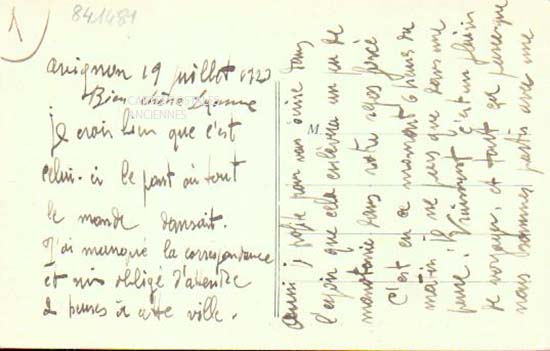 1
841481
Avignon 19 juillet 1923
Bien chère Yvonne
CARTES POSTALES
ANCIENNES
Je crois bien que c'est
celui-ci le pont où tout
le monde dansait.
J'ai manqué la correspondance
et suis obligé d'attendre
2 heures à cette ville.
M
Aussi j'en profite pour vous écrire dans
l'espoir que cela enlèvera un peu de
monotonie dans votre repos forcé
C'est en ce moment 6 heures du
matin. Je ne pars que dans une
heure. Vraiment c'est un plaisir
de voyager, et tout ça parce que
nous sommes partis avec une